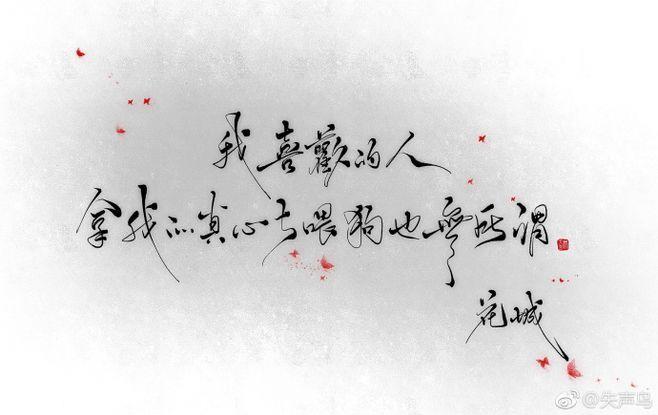 我喜歡的人
拿我的真心去喂狗也無所謂
花城
@失声鸟